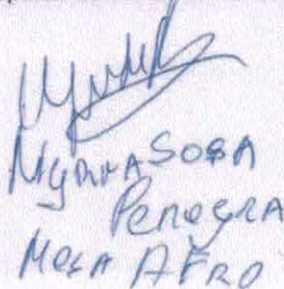 Myrna SOSA
Penegra
Mesa AFRO